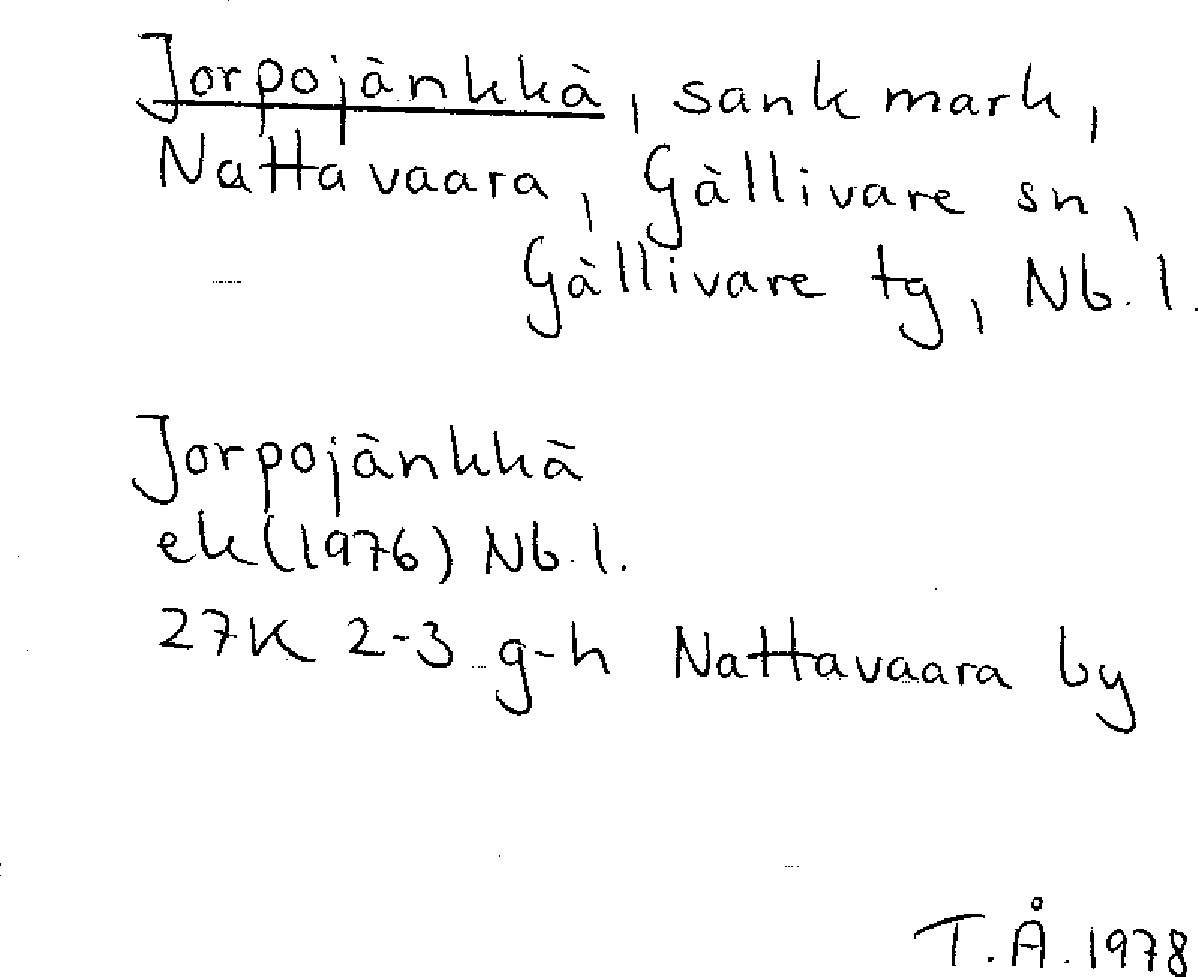 Jorpojänkkä, sankmark,
Nattavaara, Gällivare sn,
Gällivare tg, Nb. l.
Jorpojänkkä
ek (1976) Nb. l.
27K 2-3 g-h Nattavaara by
T.Å. 1978